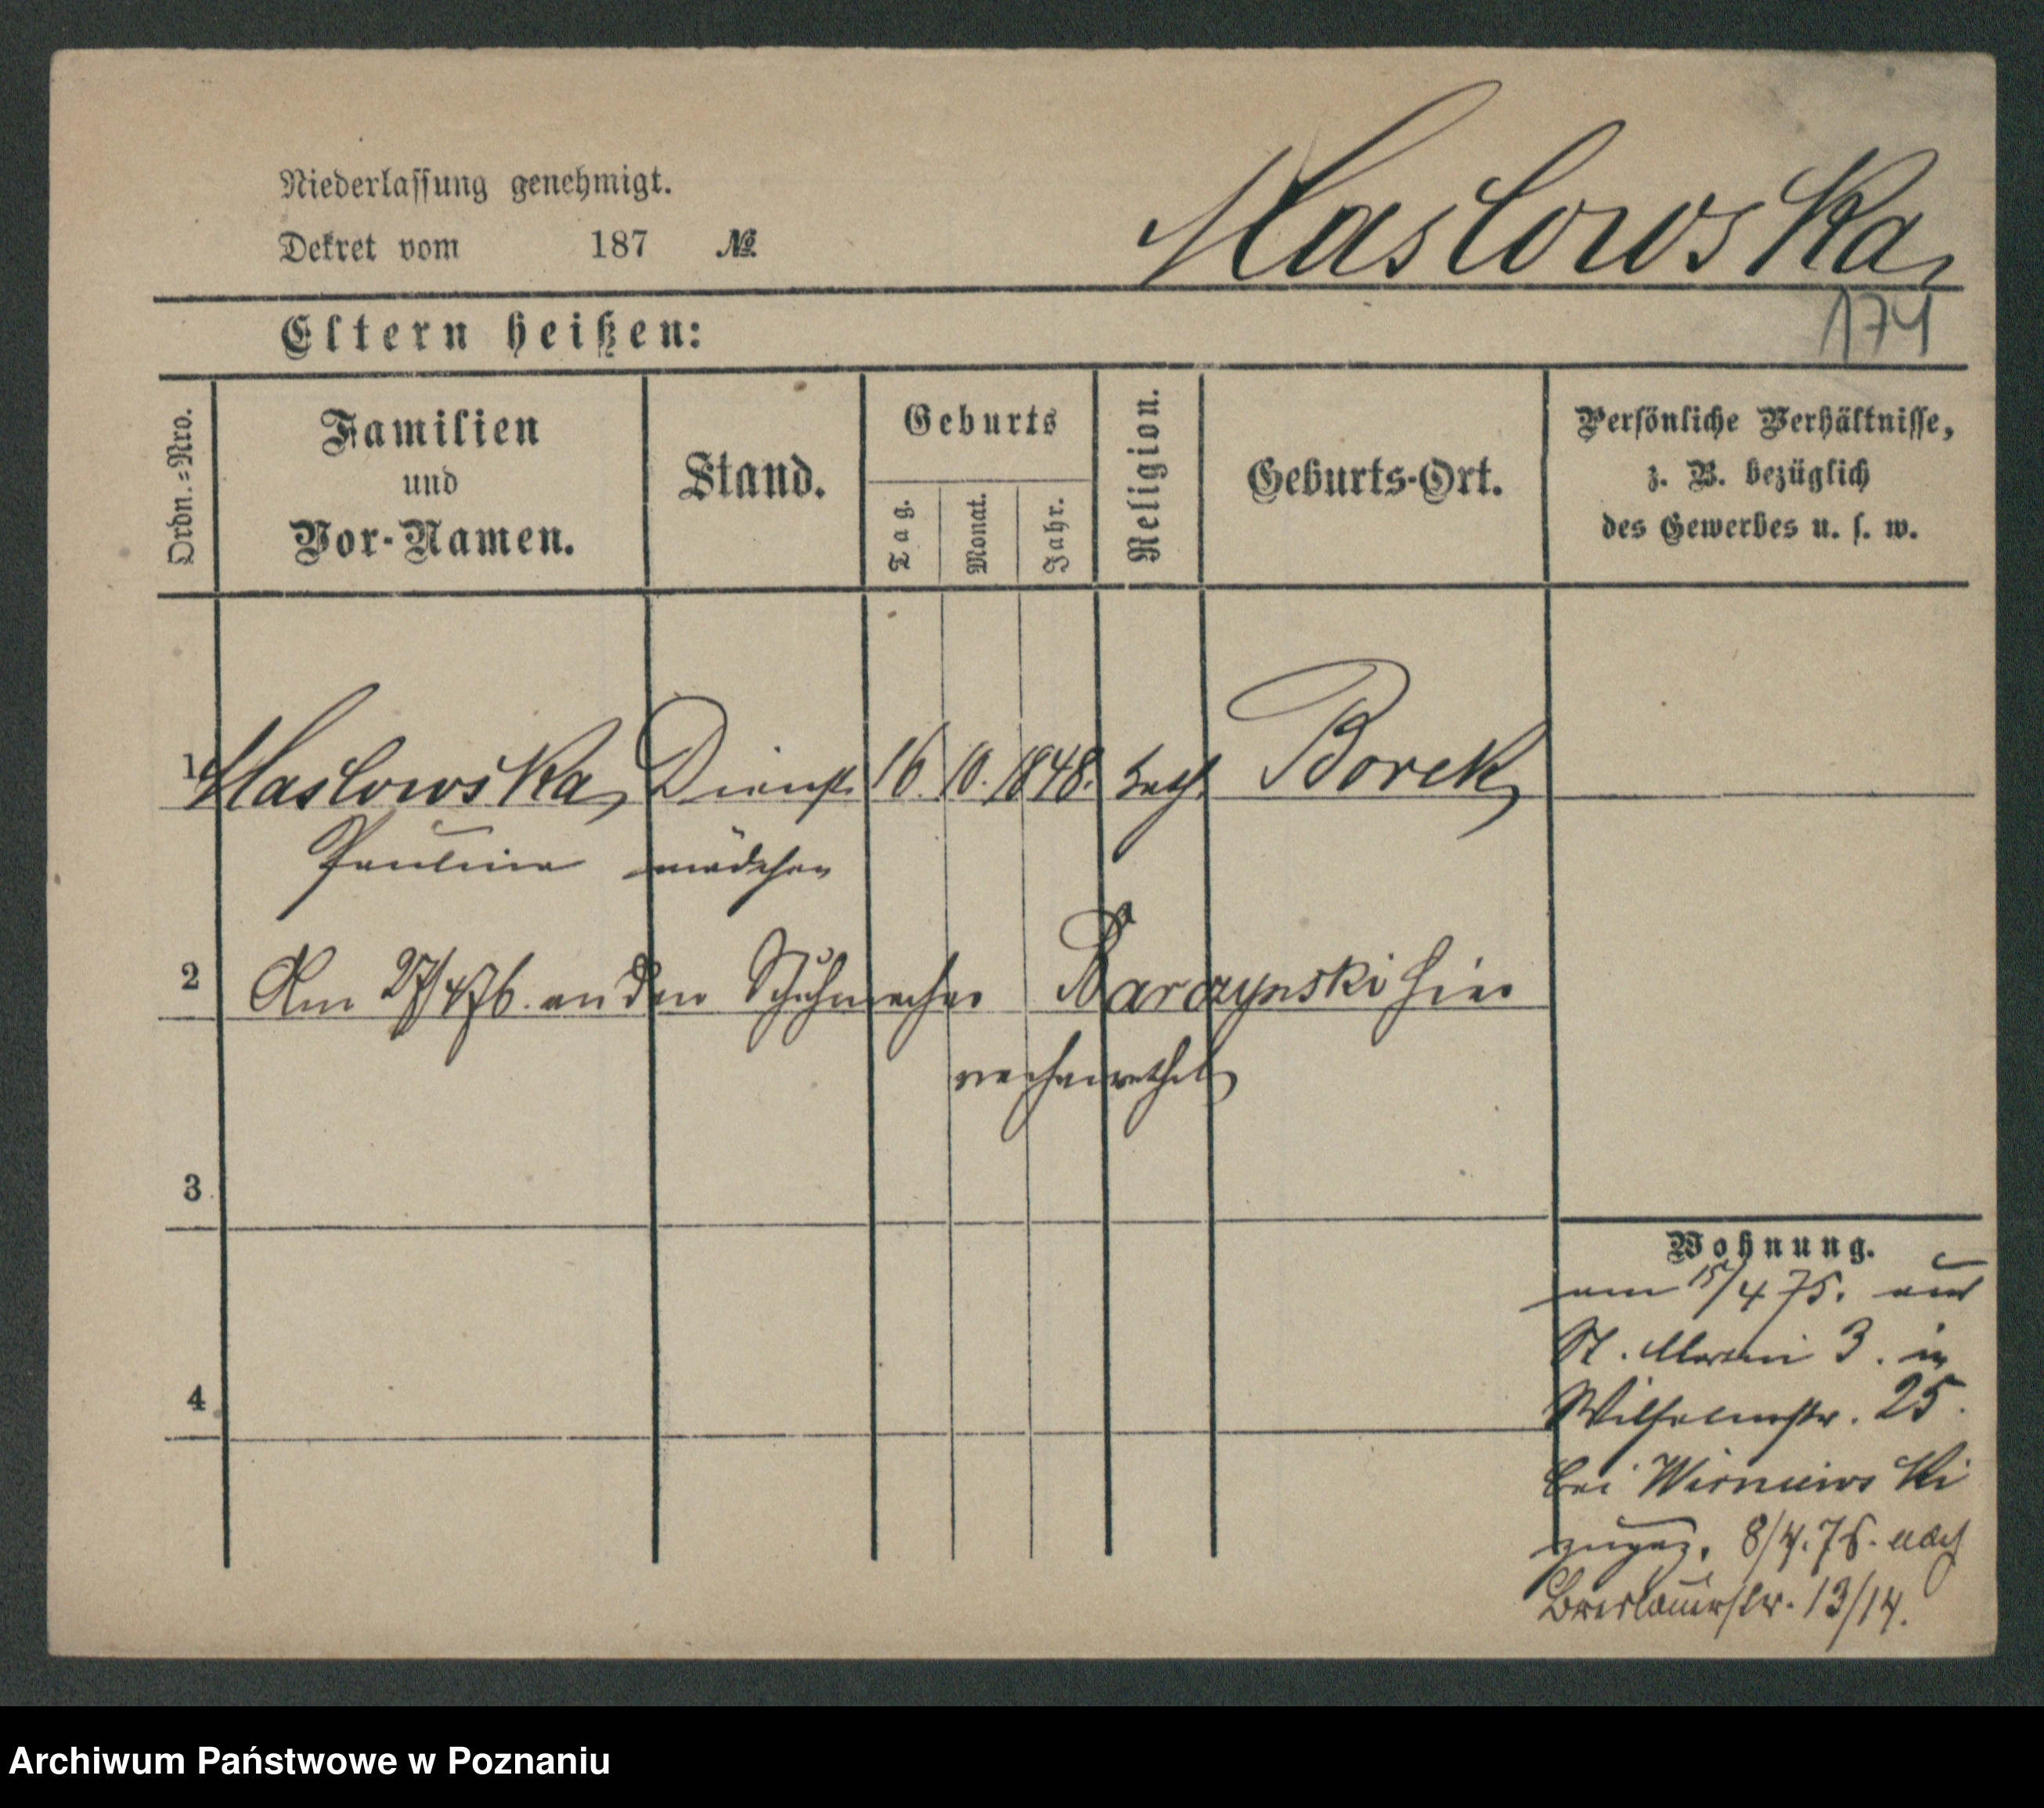 Niederlassung genehmigt.
Dekret vom 187 №
Maslowska
174
Eltern heißen:
Ordn.=Nro.
Familien
und
Vor-Namen.
Stand.
Geburts
Tag.
Monat.
Jahr.
Religion.
Geburts-Ort.
Persönliche Verhältnisse,
z. B. bezüglich
des Gewerbes u. s. w.
1 Maslowska Dienst 16. 10. 1848. kath. Borek
Paulina mädchen
2 Am 27/4 76. an den Schuhmacher Barczynski hier
verheirathet
3
4
Wohnung.
am 15/4 75. aus
St. Martin 3. in
Wilhelmstr. 25.
bei Wisniewski
zugez. 8/4. 75. nach
Breslauerstr. 13/14.
Archiwum Państwowe w Poznaniu